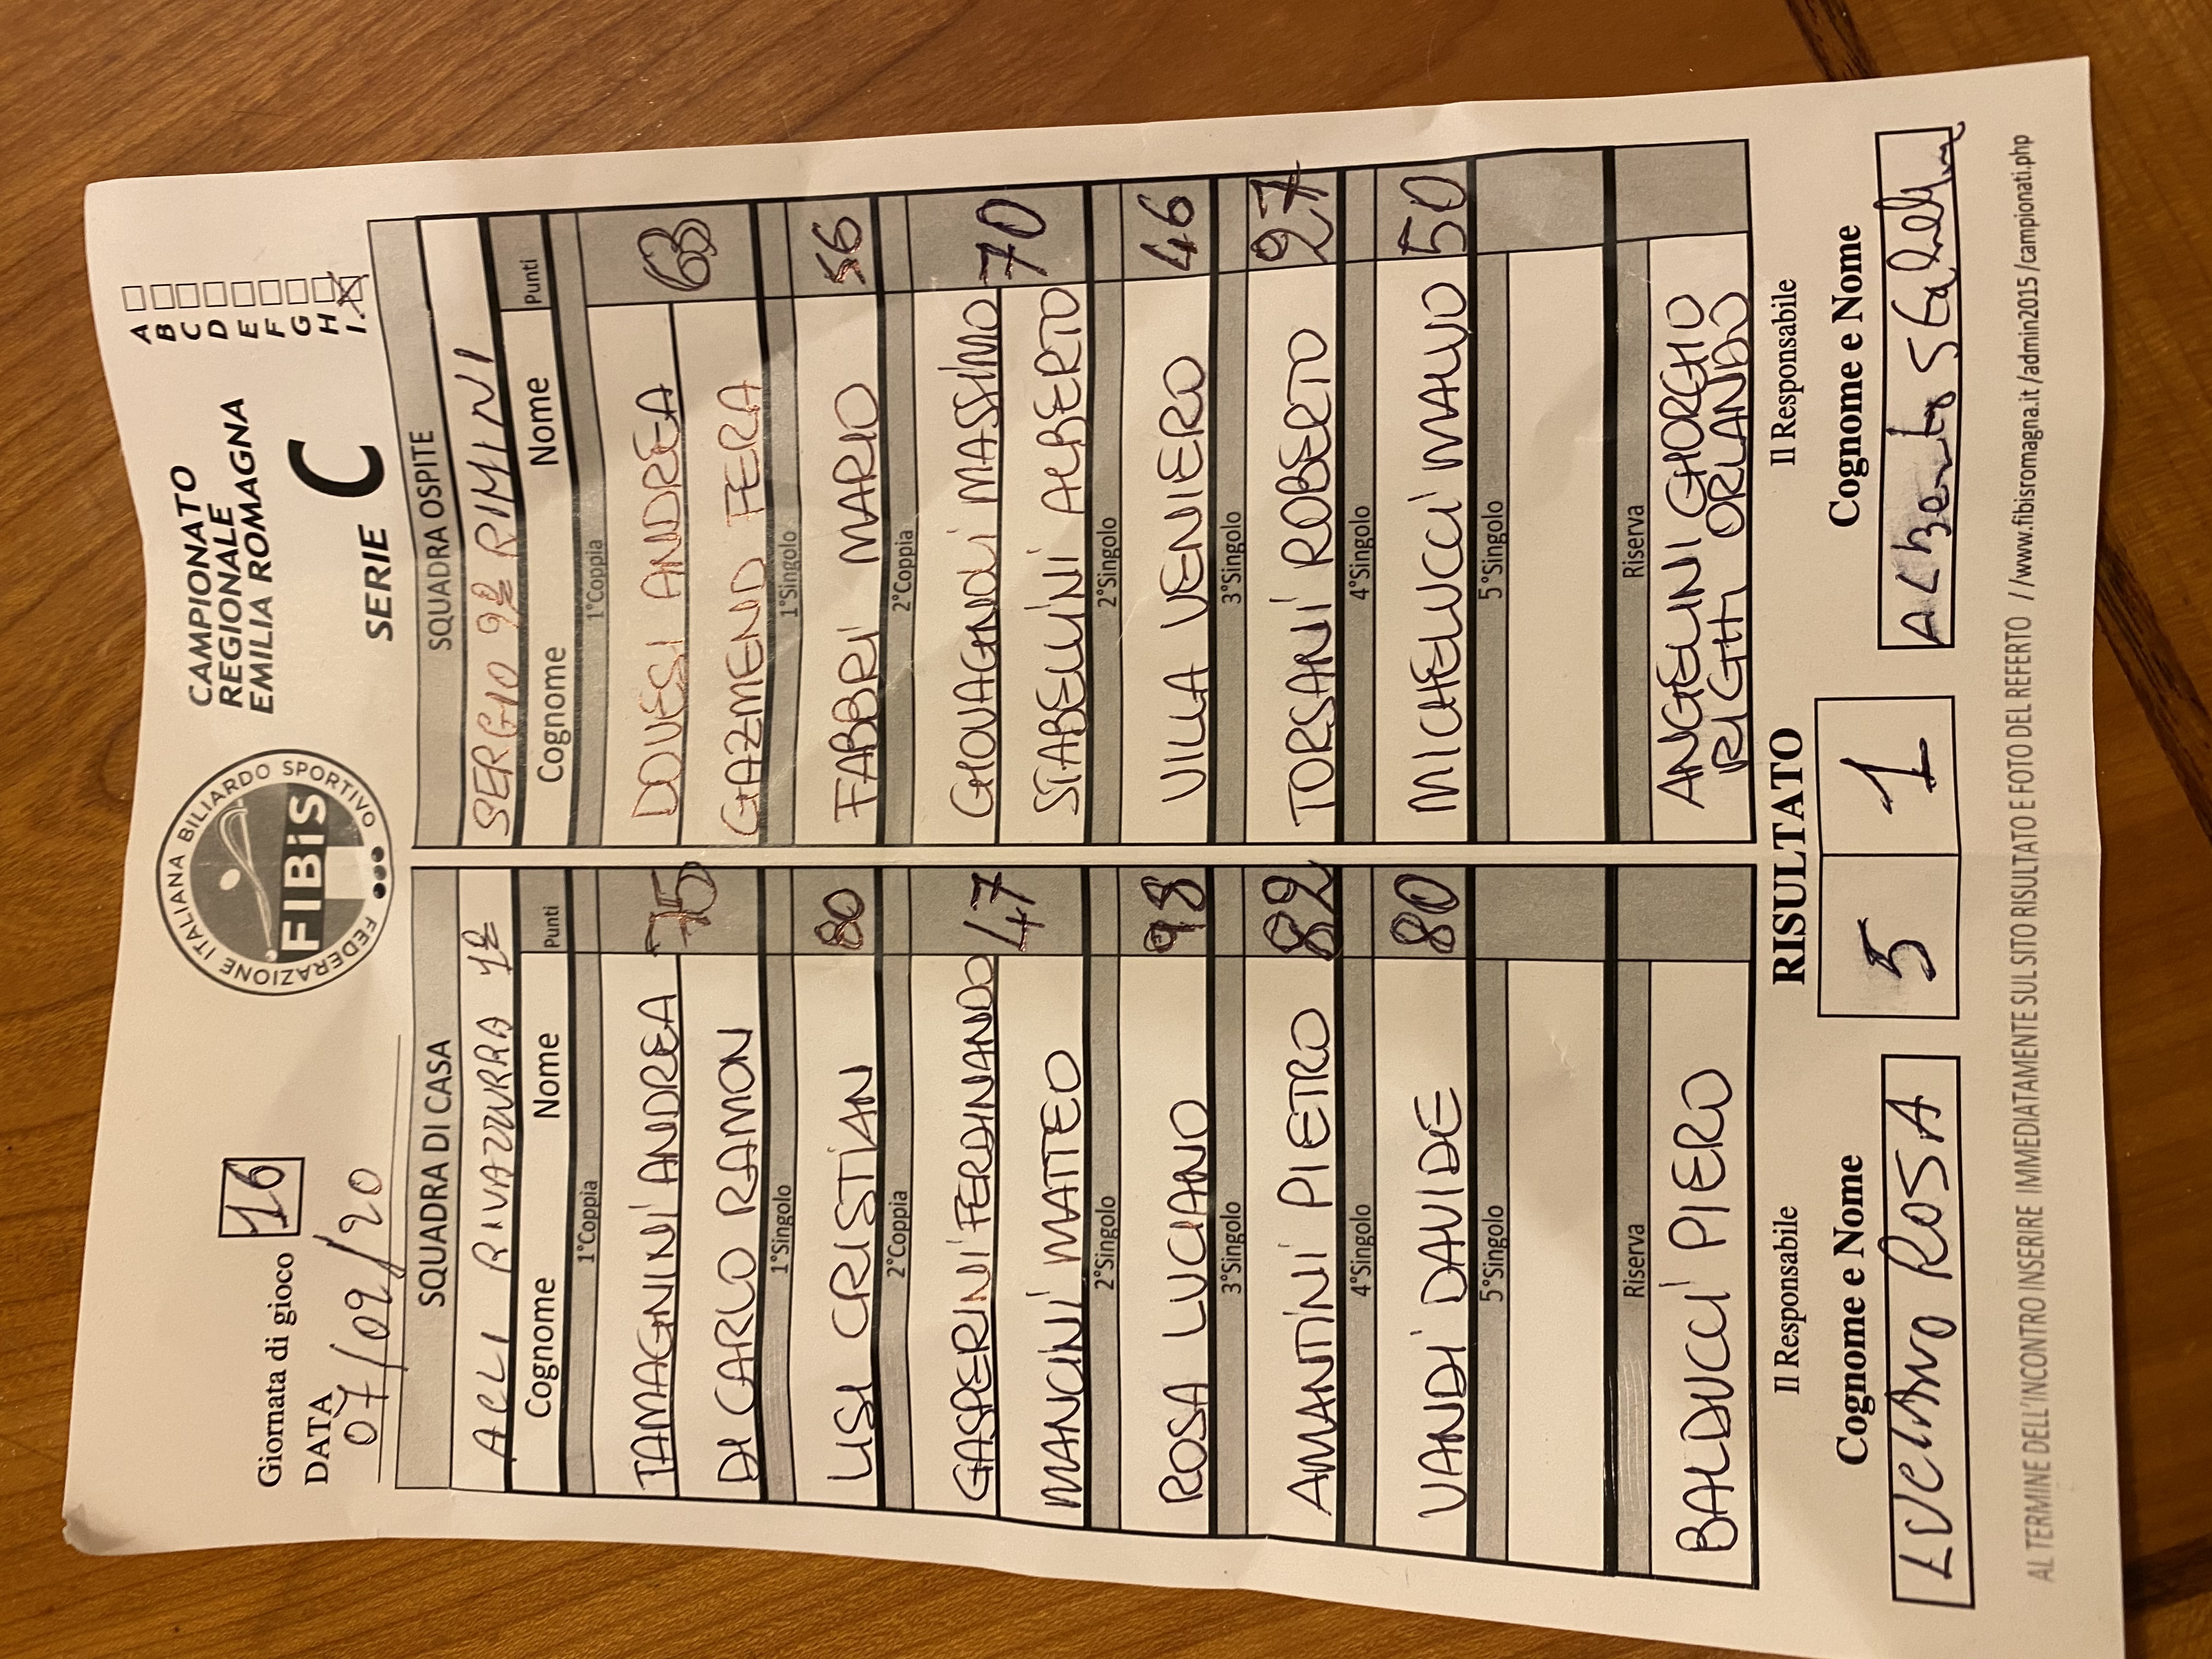 Giornata di gioco 16
DATA
07/02/20
FEDERAZIONE ITALIANA BILIARDO SPORTIVO
FIBiS
CAMPIONATO
REGIONALE
EMILIA ROMAGNA
SERIE C
A
B
C
D
E
F
G
H
I
SQUADRA DI CASA
ACLI RIVAZZURRA 1ª
Cognome Nome Punti
1°Coppia
TAMAGNINI ANDREA 75
DI CARLO RAMON
1°Singolo
LISI CRISTIAN 80
2°Coppia
GASPERINI FERDINANDO 47
MANCINI MATTEO
2°Singolo
ROSA LUCIANO 98
3°Singolo
AMANTINI PIETRO 82
4°Singolo
VANDI DAVIDE 80
5°Singolo
Riserva
BALDUCCI PIERO
SQUADRA OSPITE
SERGIO 92 RIMINI
Cognome Nome Punti
1°Coppia
DOVESI ANDREA 63
GAZMEND FERA
1°Singolo
FABBRI MARIO 56
2°Coppia
GIOVAGNOLI MASSIMO 70
STABELLINI ALBERTO
2°Singolo
VILLA VENIERO 46
3°Singolo
TORSANI ROBERTO 27
4°Singolo
MICHELUCCI MAURO 50
5°Singolo
Riserva
ANGELINI GIORGIO
RIGHI ORLANDO
RISULTATO
5 1
Il Responsabile
Cognome e Nome
LUCIANO ROSA
Il Responsabile
Cognome e Nome
AL TERMINE DELL'INCONTRO INSERIRE IMMEDIATAMENTE SUL SITO RISULTATO E FOTO DEL REFERTO //www.fibisromagna.it /admin2015 /campionati.php